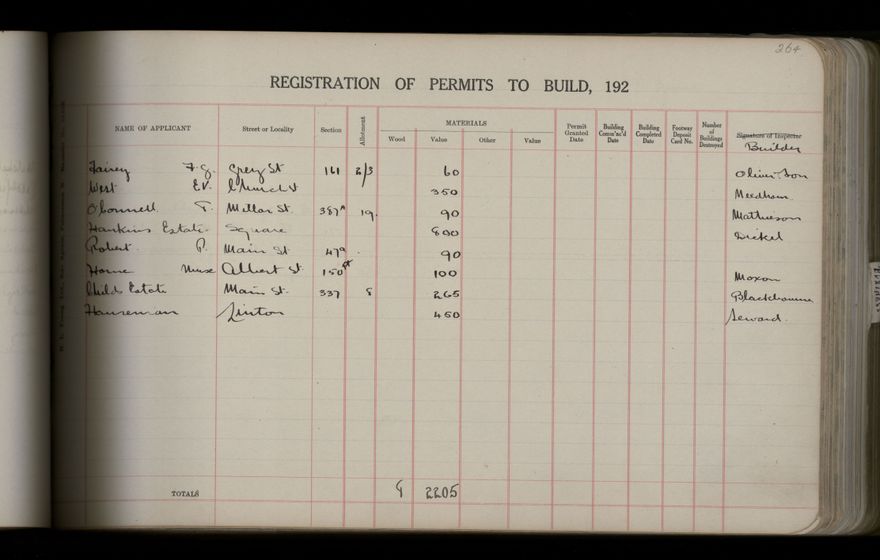 264
REGISTRATION OF PERMITS TO BUILD, 192
NAME OF APPLICANT Street or Locality Section Allotment MATERIALS Permit Granted Date Building Comm'nc'd Date Building Completed Date Footway Deposit Card No. Number of Buildings Destroyed Signature of Inspector
Wood Value Other Value Builder
Fairey F.G. Grey St 161 2/3 60 Oliver & Son
West EV. Church St 350 Needham
O'Connell T. Millar St. 387A 19. 90 Mathieson
Hankins Estate Square 800 Dickel
Robert P. Main St 479 90
Horne Nurse Albert St. 150 100 Moxon
Childs Estate Main St. 337 8 265 Blackbourne
Hauseman Linton 450 Seward.
TOTALS 9 2205